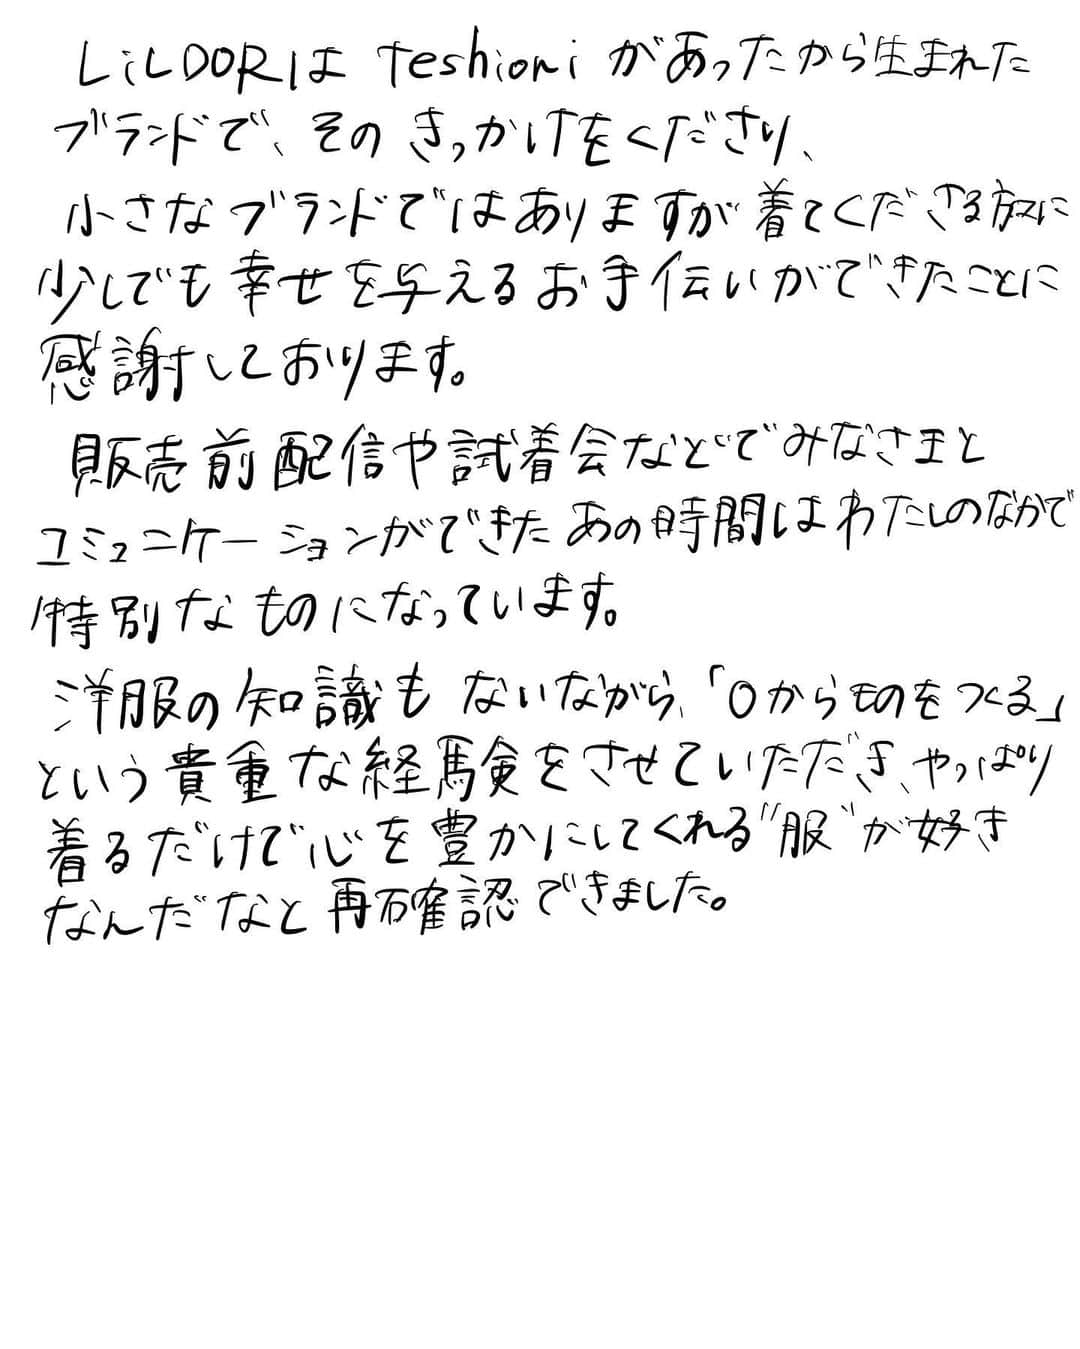 LiLDORは teshioniがあったから生まれた
ブランドで、そのきっかけをくださり、
小さなブランドではありますが着てくださる方に
少しでも幸せを与えるお手伝いができたことに
感謝しております。
販売前配信や試着会などでみなさまと
コミュニケーションができたあの時間はわたしのなかで
特別なものになっています。
洋服の知識もないながら、「0からものをつくる」
という貴重な経験をさせていただき、やっぱり
着るだけで心を豊かにしてくれる"服"が好き
なんだなと再確認できました。